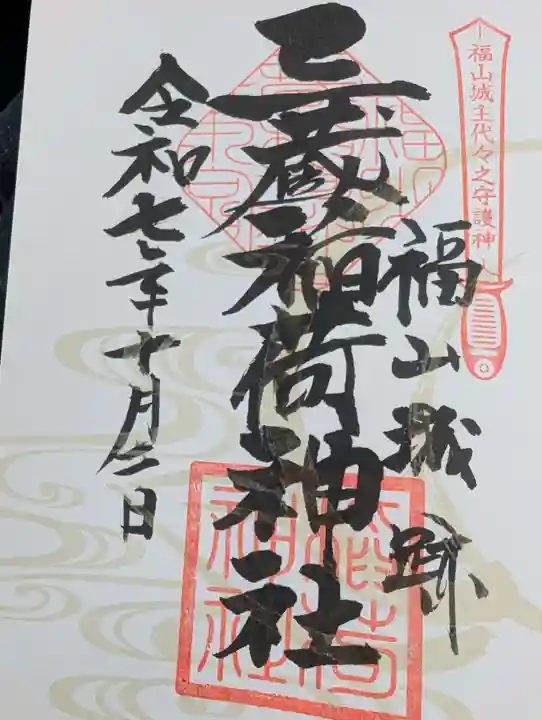 福山城主代々之守護神
福山城跡
三蔵稲荷神社
令和七年十月日
稲荷
神社